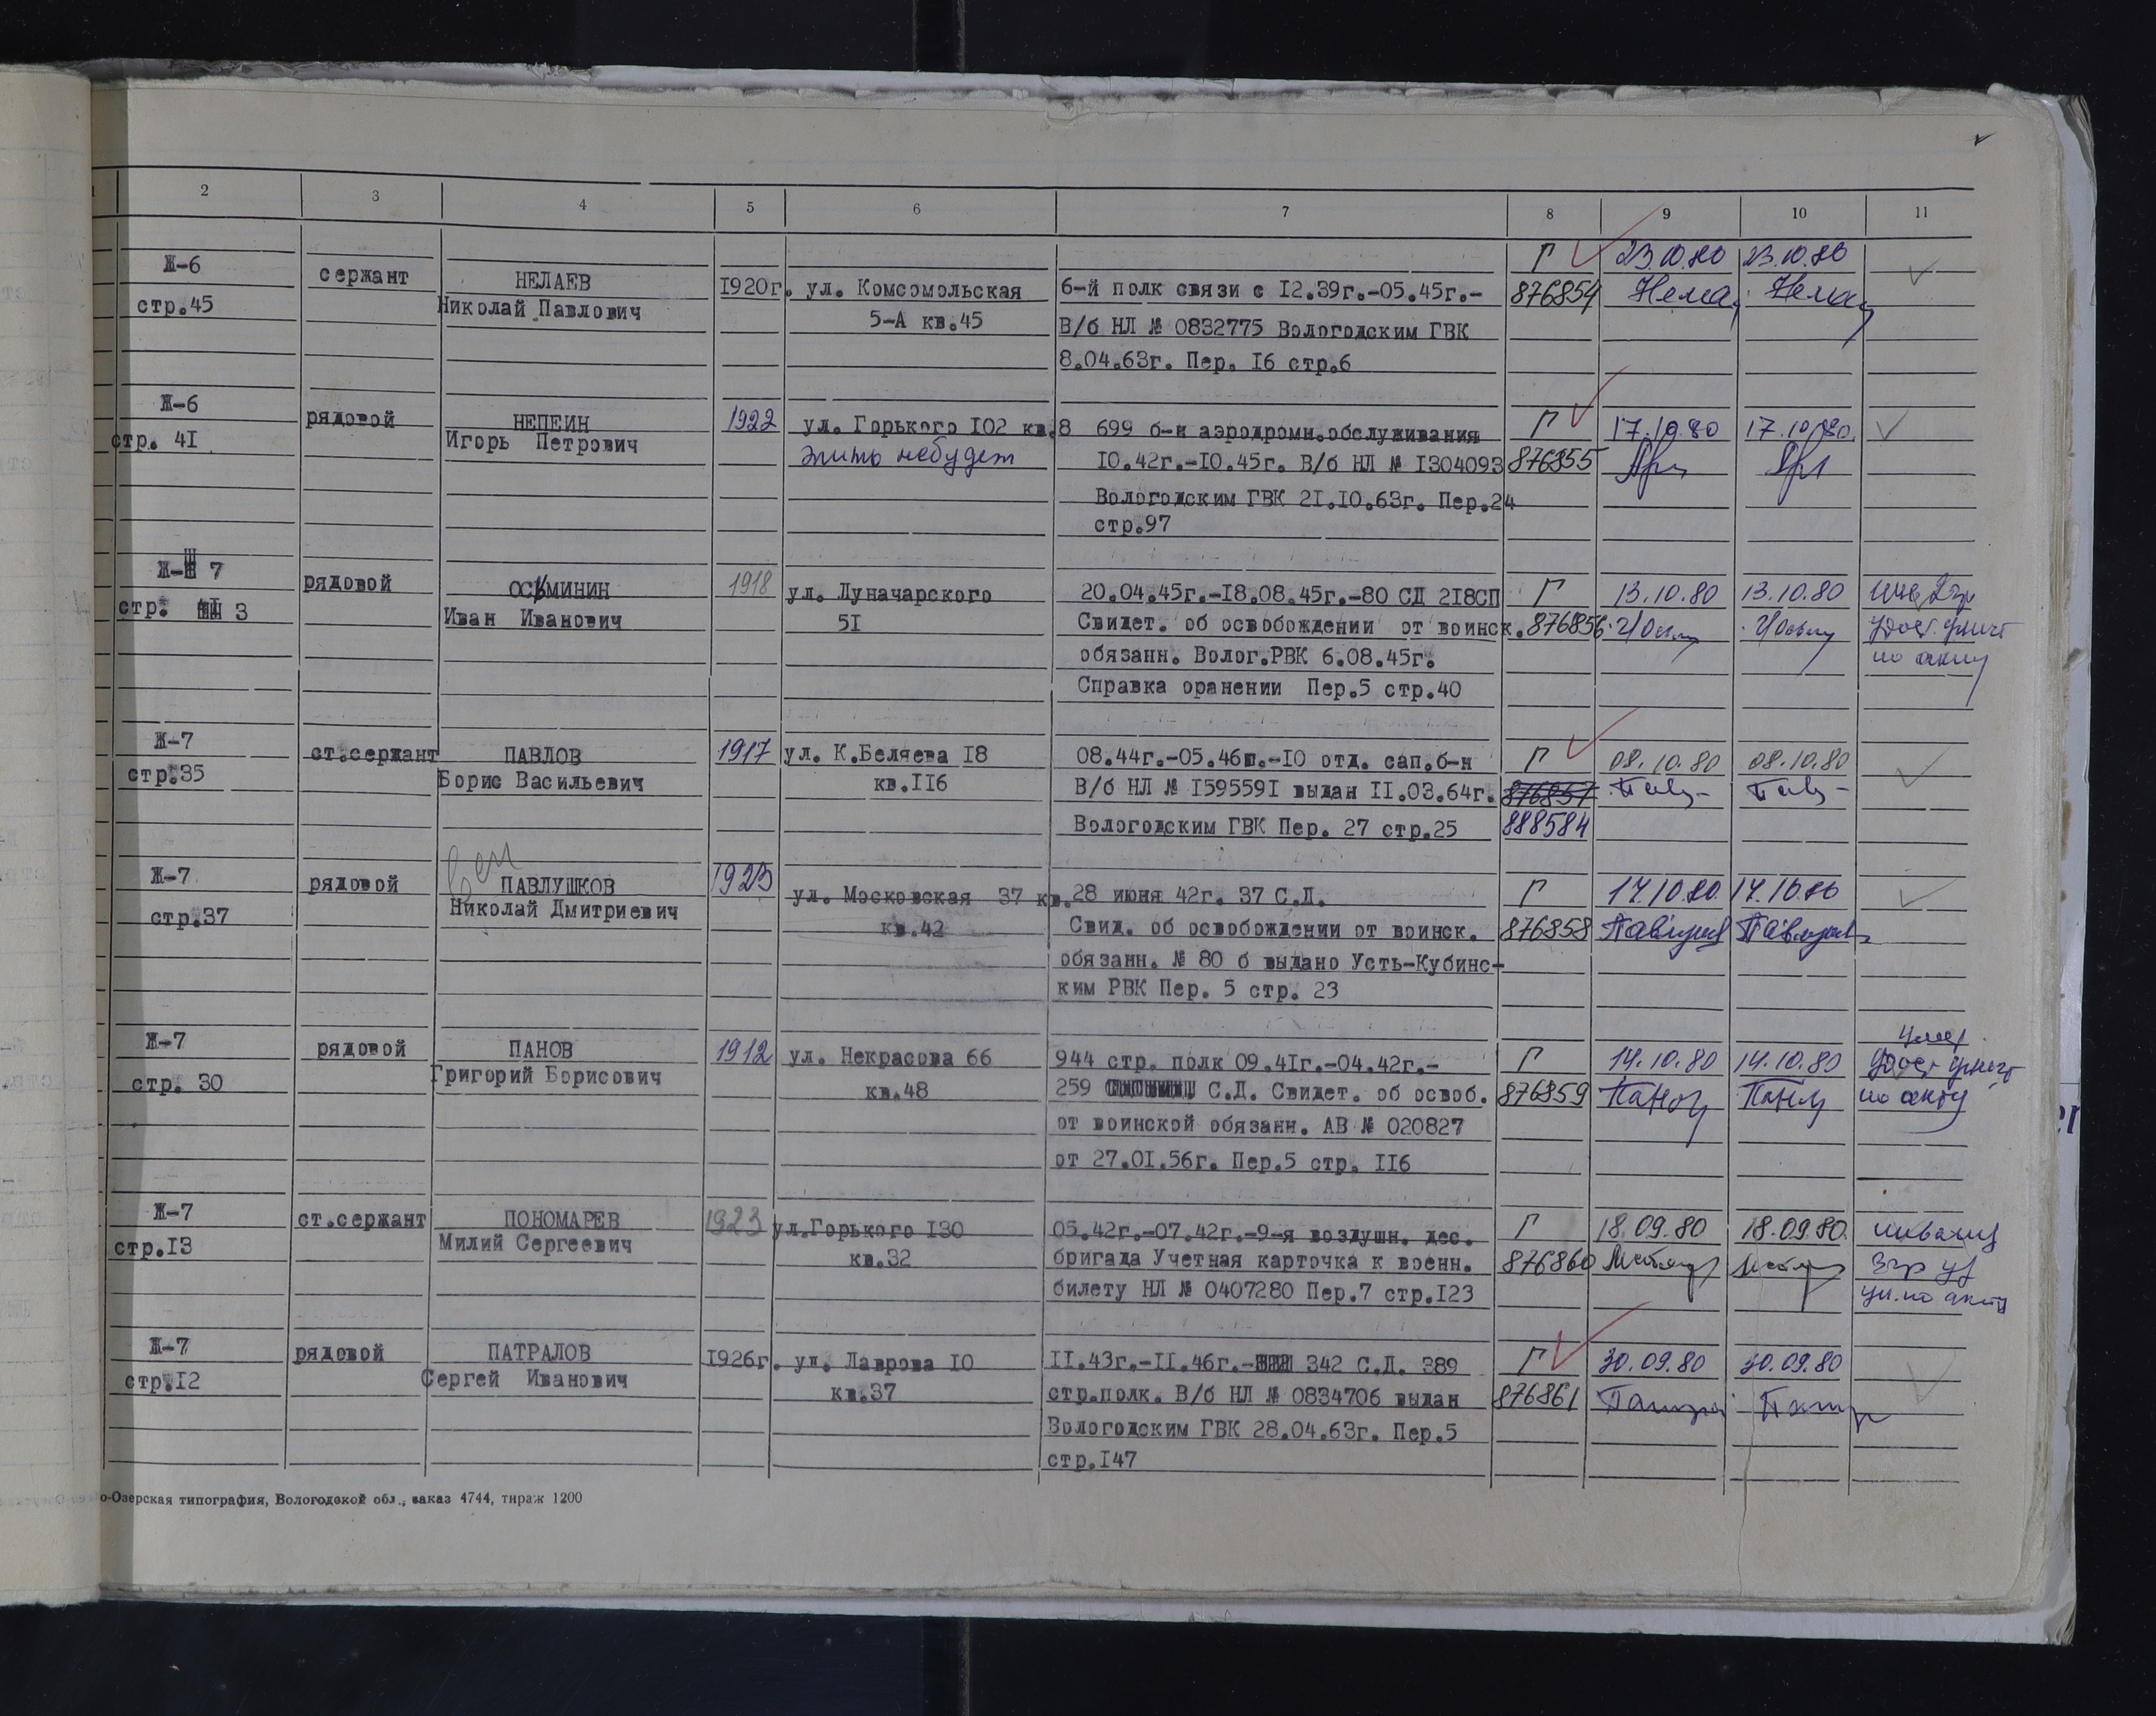 2 3 4 5 6 7 8 9 10 11
Ж-6 сержант НЕЛАЕВ 1920г. ул. Комсомольская 6-й полк связи с 12.39г.-05.45г.- Г 23.10.80 23.10.80
стр.45 Николай Павлович 5-А кв.45 В/б НЛ № 0832775 Вологодским ГВК 876854
8.04.63г. Пер. 16 стр.6
Ж-6 рядовой НЕПЕИН 1922 ул. Горького 102 кв.8 699 б-н аэродромн.обслуживания Г 17.10.80 17.10.80.
стр. 41 Игорь Петрович жить небудет 10.42г.-10.45г. В/б НЛ № 1304093 876855
Вологодским ГВК 21.10.63г. Пер.24
стр.97
Ж- 7 рядовой ОСЬМИНИН 1918 ул. Луначарского 20.04.45г.-18.08.45г.-80 СД 218СП Г 13.10.80 13.10.80
стр. 3 Иван Иванович 51 Свидет. об освобождении от воинск. 876856
обязанн. Волог.РВК 6.08.45г. по акту
Справка оранении Пер.5 стр.40
Ж-7 ст.сержант ПАВЛОВ 1917 ул. К.Беляева 18 08.44г.-05.46г.-10 отд. сап.б-н Г 08.10.80 08.10.80
стр.35 Борис Васильевич кв.116 В/б НЛ № 1595591 выдан 11.03.64г. 876857
Вологодским ГВК Пер. 27 стр.25 888584
Ж-7 рядовой ПАВЛУШКОВ 1923 ул. Московская 37 кв. 28 июня 42г. 37 С.Д. Г 17.10.80 17.10.80
стр.37 Николай Дмитриевич кв.42 Свид. об освобождении от воинск. 876858
обязанн. № 80 б выдано Усть-Кубинс-
ким РВК Пер. 5 стр. 23
Ж-7 рядовой ПАНОВ 1912 ул. Некрасова 66 944 стр. полк 09.41г.-04.42г.- Г 14.10.80 14.10.80 умер
стр. 30 Григорий Борисович кв.48 259 С.Д. Свидет. об освоб. 876859 по акту
от воинской обязанн. АВ № 020827
от 27.01.56г. Пер.5 стр. 116
Ж-7 ст.сержант ПОНОМАРЕВ 1923 ул.Горького 130 05.42г.-07.42г.-9-я воздушн. дес. Г 18.09.80 18.09.80. инвалид
стр.13 Милий Сергеевич кв.32 бригада Учетная карточка к военн. 876860
билету НЛ № 0407280 Пер.7 стр.123 по акту
Ж-7 рядовой ПАТРАЛОВ 1926г. ул. Лаврова 10 11.43г.-11.46г.- 342 С.Д. 389 Г 30.09.80 30.09.80
стр.12 Сергей Иванович кв.37 стр.полк. В/б НЛ № 0834706 выдан 876861
Вологодским ГВК 28.04.63г. Пер.5
стр.147
о-Озерская типография, Вологодской обл., заказ 4744, тираж 1200